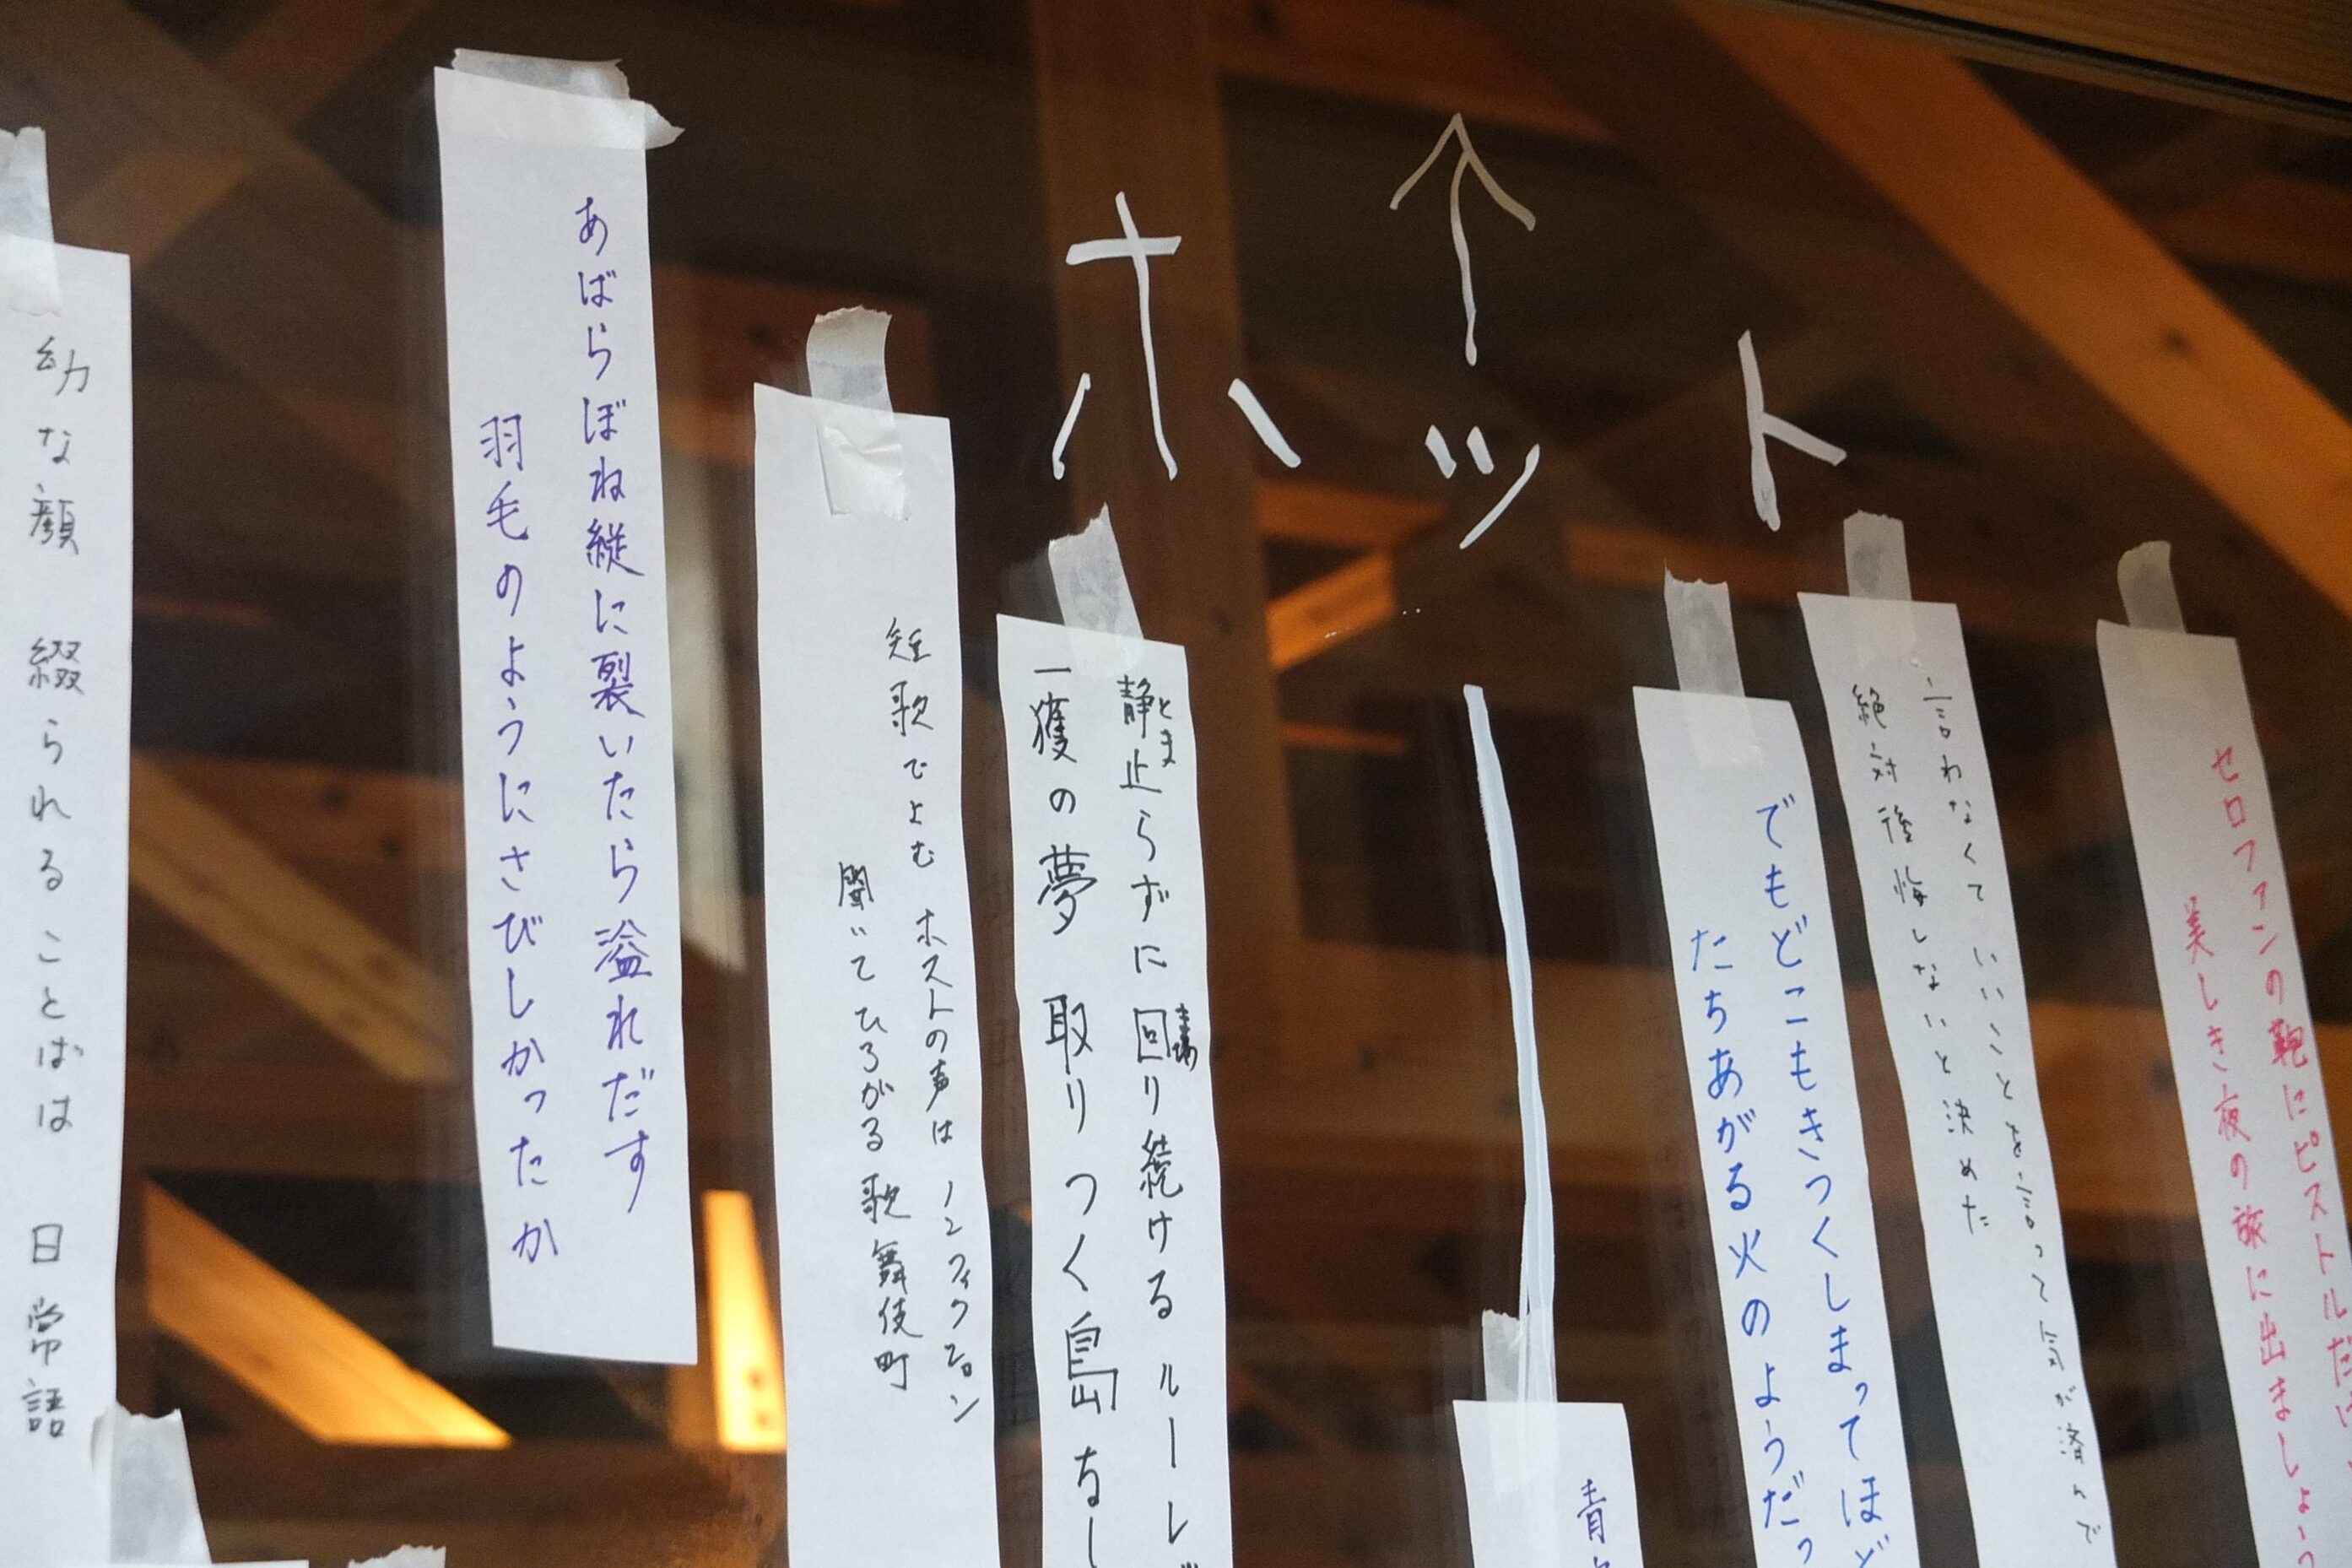 ↑
ホット
セロファンの鞄にピストルだけ
美しき夜の旅に出ましょう
言わなくていいことを言って気が済んで
絶対後悔しないと決めた
でもどこもきつくしまってほど
たちあがる火のようだっ
青
静止らずに回り続けるルーレ
とま
一獲の夢 取りつく島なし
短歌でよむ ホストの声は ノンフィクション
聞いてひろがる歌舞伎町
あばらぼね縦に裂いたら溢れだす
羽毛のようにさびしかったか
幼な顔 綴られることばは 日常語